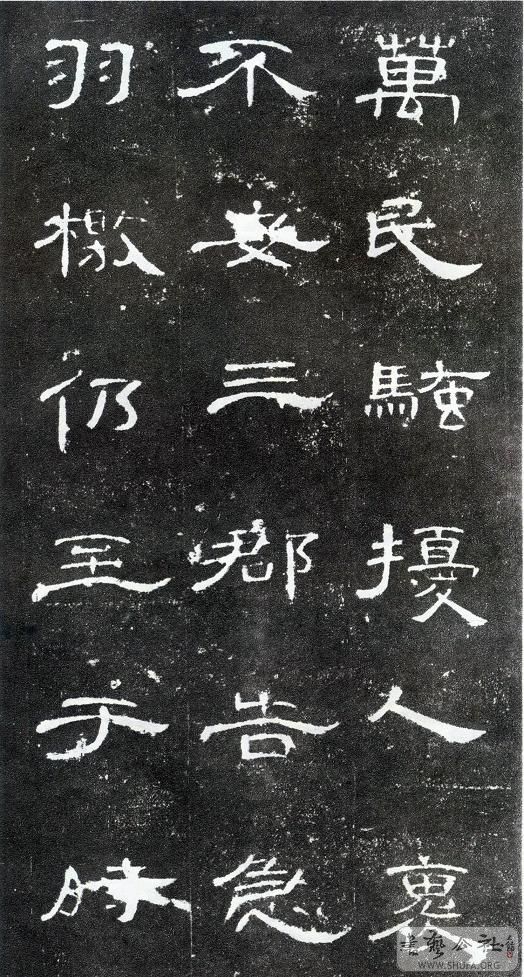 萬民騷擾人褱
不安三郡告急
羽檄仍至于時
書藝公社
WWW.SHUFA.ORG